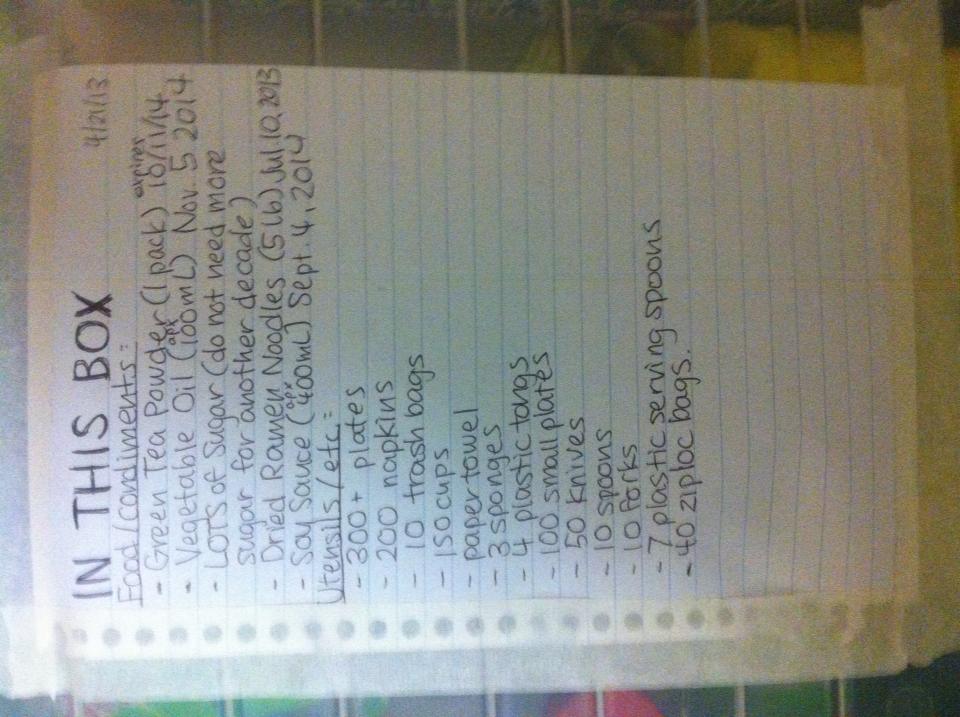 IN THIS BOX 4/21/13
Food/condiments:
- Green Tea Powder (1 pack) expires 10/11/14
- Vegetable Oil (apx 100mL) Nov. 5 2014
- LOTS of Sugar (do not need more
sugar for another decade)
- Dried Ramen Noodles (5 lb) Jul.10,2013
- Soy Sauce (apx 400mL) Sept. 4, 2014
Utensils/etc.:
- 300+ plates
- 200 napkins
- 10 trash bags
- 150 cups
- paper towel
- 3 sponges
- 4 plastic tongs
- 100 small plates
- 50 knives
- 10 spoons
- 10 forks
- 7 plastic serving spoons
- 40 ziploc bags.